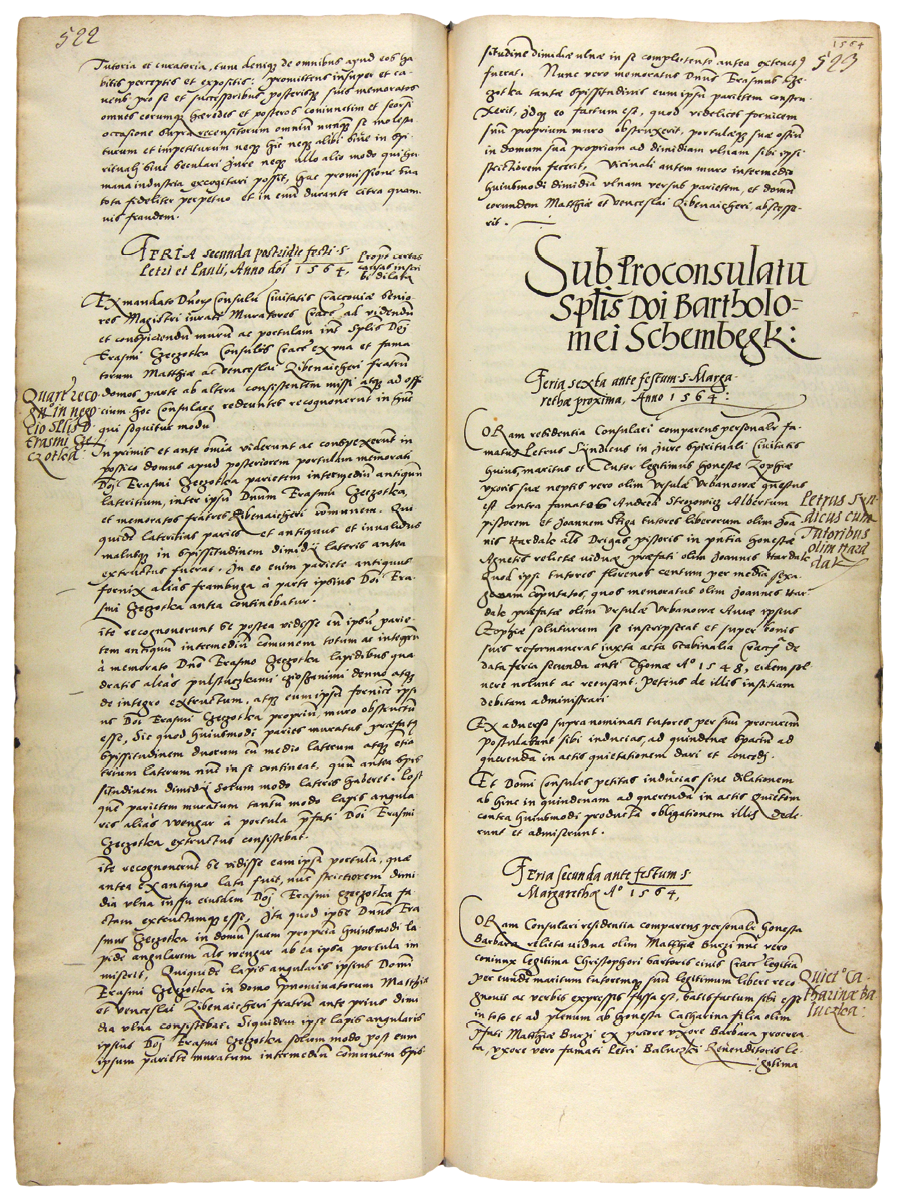 522
Tutoria et curatoria, cum deniq de omnibus apud eos ha-
bitis perceptis et expositis: promittens insuper et ca-
vens pro se et successoribus posterisq suis memoratos
omnes eorumq hæredes et posteros coniunctim et seorsi
occasione supra recensitorum omniū nunq se molesta
turum et impetiturum neq hic neq alibi sive in spi-
rituali sive seculari Jure neq ullo alio modo qui hu-
mana industria excogitari possit, hac promissione sua
tota fideliter perpetuo et in euū durante citra quam-
vis fraudem.
FERIA secunda postridie festi S
Petri et Pauli, Anno doi 1564,
Ex mandato Dnorȝ Consulū Civitatis Cracoviæ Senio-
res Magistri iurati Muratores Crac: ad videndū
et conspiciendū murū ac portulam inr Splis Doj
Erasmi Czeczotka Consulis Crac ex una et fama
torum Matthiæ ac Venceslai Ribenaicheri fratrū
Quare reco
gn: in nego
cio Spllis D
Erasmi Cze
czotka
domus parte ab altera consistentem missi atq ad offi
cium hoc Consulare redeuntes recognoverunt in hūc
qui sequitur modū
In primis et ante omia viderunt ac conspexerunt in
postico domus apud posteriorem portulam memorati
Doj Erasmi Czeczotka parietem intermediū antiquū
lateritium, inter ipsū Dnum Erasmū Czeczotka,
et memoratos fratres Ribenaicheri comunem. Qui
quidē lateritius paries et antiquus et invalidus
malusq in spissitudinem dimidij lateris antea
extructus fuerat. In eo enim pariete antiquus
fornix aliàs frambuga à parte ipsius Doi Era-
smi Czeczotka antea continebatur.
Itē recognoverunt se postea vidisse in ipsū parie-
tem antiquū intermediū comunem totum ac integrū
à memorato Dnō Erasmo Czeczotka lapidibus qua
dratis aliàs pulsztuczkami cziossanimi denuo atq
de integro extructum, atq eum ipsū fornicē ipsi
us Doi Erasmi Czeczotka propriū, muro obstructū
esse, sic quod huiusmodi paries muratus
spissitudinem duorum cū medio laterum atq etiā
trium laterum nūc in se contineat, quū antea spis
situdinem dimidij solum modo lateris haberet. Post
quē parietem muratum tantū modo lapis angula
ris aliàs wengar à portula pfati Doi Erasmi
Czeczotka extructus consistebat.
Itē recognoverūt se vidisse eam ipsā portulā, quæ
antea ex antiquo lata fuit, nūc strictiorem dimi
dia ulna iussu eiusdem Doj Erasmi Czeczotka fa
ctam extructamq esse, Ita quod ipse Dnus Era
smus Czeczotka in domū suam propriā huiusmodi la
pidē angularem als wengar ab ea ipsa portula im
misit, Quiquidē lapis angularis ipsius Domi
Erasmi Czeczotka in domo pnominatorum Matthiæ
et Venceslai Ribenaicheri fratrū ante prius dimi
dia ulna consistebat. Siquidem ipse lapis angularis
ipsius Doj Erasmi Czeczotka solum modo post eum
ipsum pariete muratum intermediū comunem spis
1564
523
situdine dimidiæ ulnæ in se complectente antea extructꝰ
fuerat. Nunc vero memoratus Dnus Erasmus Cze-
czotka tantæ spissitudinis eum ipsū parietem constru-
xerit, Idq eo factum est, quod videlicet fornicem
suū proprium muro obstruxerit, portulæq suæ ostiū
in domum suā propriam ad dimidiam ulnam sibi ipsi
strictiorem fecerit, Vicinali autem muro intermedio
huiusmodi dimidiā ulnam versus parietem, et domū
eorundem Matthiæ et Venceslai Ribenaicheri, abscesse-
rit.
Sub Proconsulatu
Splis Doi Bartholo-
mei Schembegk:
Feria sexta ante festum S. Marga-
rethæ proxima, Anno 1564:
CORam residentia Consulari comparens personalr fa-
matus Petrus Syndicus in Jure Spirituali Civitatis
huius, maritus et Tutor legitimus honestæ Zophiæ
uxoris suæ neptis vero olim Ursulæ Urbanowæ questus
est contra famatos Andreā Strozowicz Albertum
pistorem et Joannem Stiga tutores liberorum olim Joā
nis Hardale als Drigas pistoris in pntia honestæ
Agnetis relictæ viduæ præfati olim Joannis Hardale
Quod ipsi tutores florenos centum per mediā sexa
genam computatos, quos memoratus olim Joannes Har
dale præfatæ olim Ursulæ Urbanowæ Aviæ ipsius
Zophiæ soluturum se inscripserat et super bonis
suis reformaverat iuxta acta Scabinalia Cracs de
data feria secunda ante Thomæ Ao 1548, eidem sol
vere nolunt ac recusant. Petens de illis iustitiam
debitam administrari
Petrus Syn-
dicus cum
Tutoribus
olim Hard
dak
Ex adverso supra nominati tutores per suū procurem
postularunt sibi inducias, ad quindenæ spaciū ad
querendū in actis quietationem dari et concedi.
Et Domi Consules petitas inducias sine dilationem
ab hinc in quindenam ad querendā in actis quietom
contra huiusmodi productā obligationem illis dede-
runt et admiserunt.
Feria secunda ante festum S
Margarethæ Ao 1564,
CORam Consulari residentia comparens personalr honesta
Barbara relicta vidua olim Matthiæ Burzi nūc vero
coniunx legitima Christophori sartoris civis Crac: legitiā
per eundē maritum tutoremq suū legitimum libere reco
gnovit ac verbis expressis fassa est, satisfactum sibi esse
in toto et ad plenum ab honesta Catharina filia olim
Pfati Matthiæ Burzi ex priore uxore Barbara procrea
ta, uxore vero famati Petri Baluczki Revenditoris le-
gitima
Quietō Ca-
tharinæ Ba
luczka: